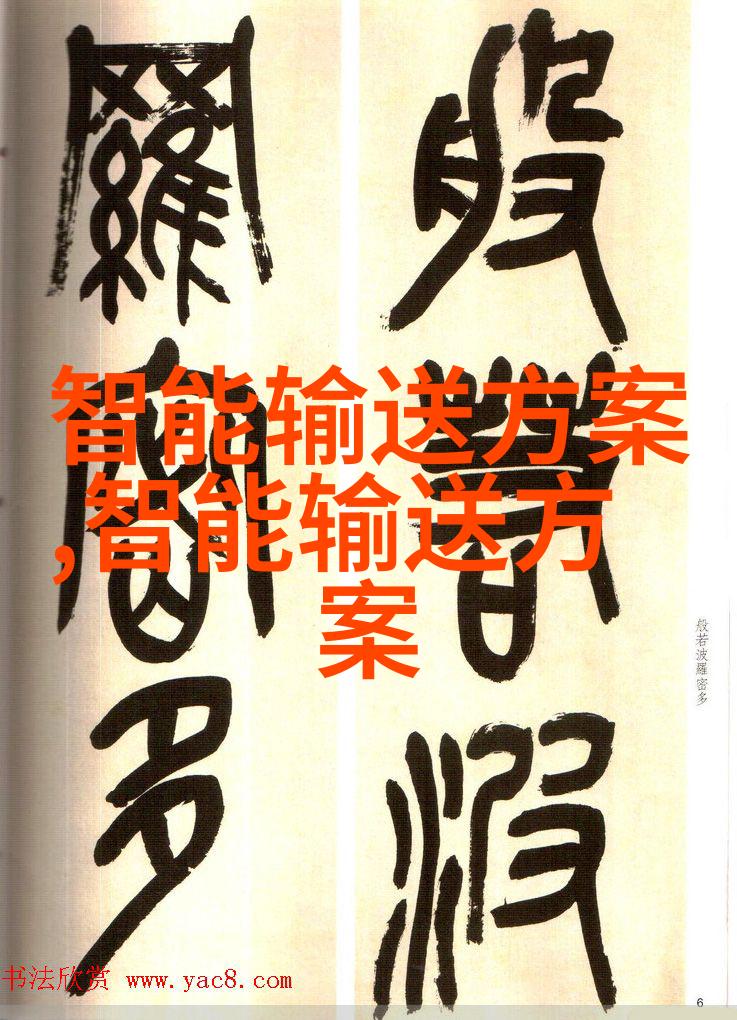 般若波
羅密多
智能输送方案
,智能输送方
案
般若波羅密多
书法欣赏 www.yac8.com
6